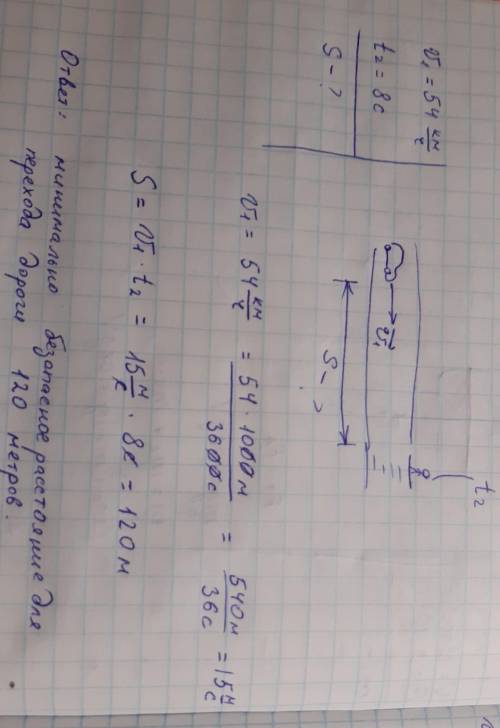 v₁ = 54 км/ч
t₂ = 8с
S - ?
t₂
v₁
S - ?
v₁ = 54 км/ч = 54 · 1000м / 3600с = 540м / 36с = 15 м/с
S = v₁ · t₂ = 15 м/с · 8с = 120м
Ответ: минимально безопасное расстояние для
перехода дороги 120 метров.